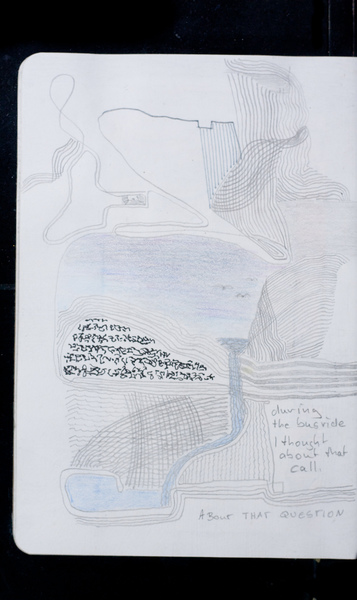 during
the busride
I thought
about that
call.
ABOUT THAT QUESTION